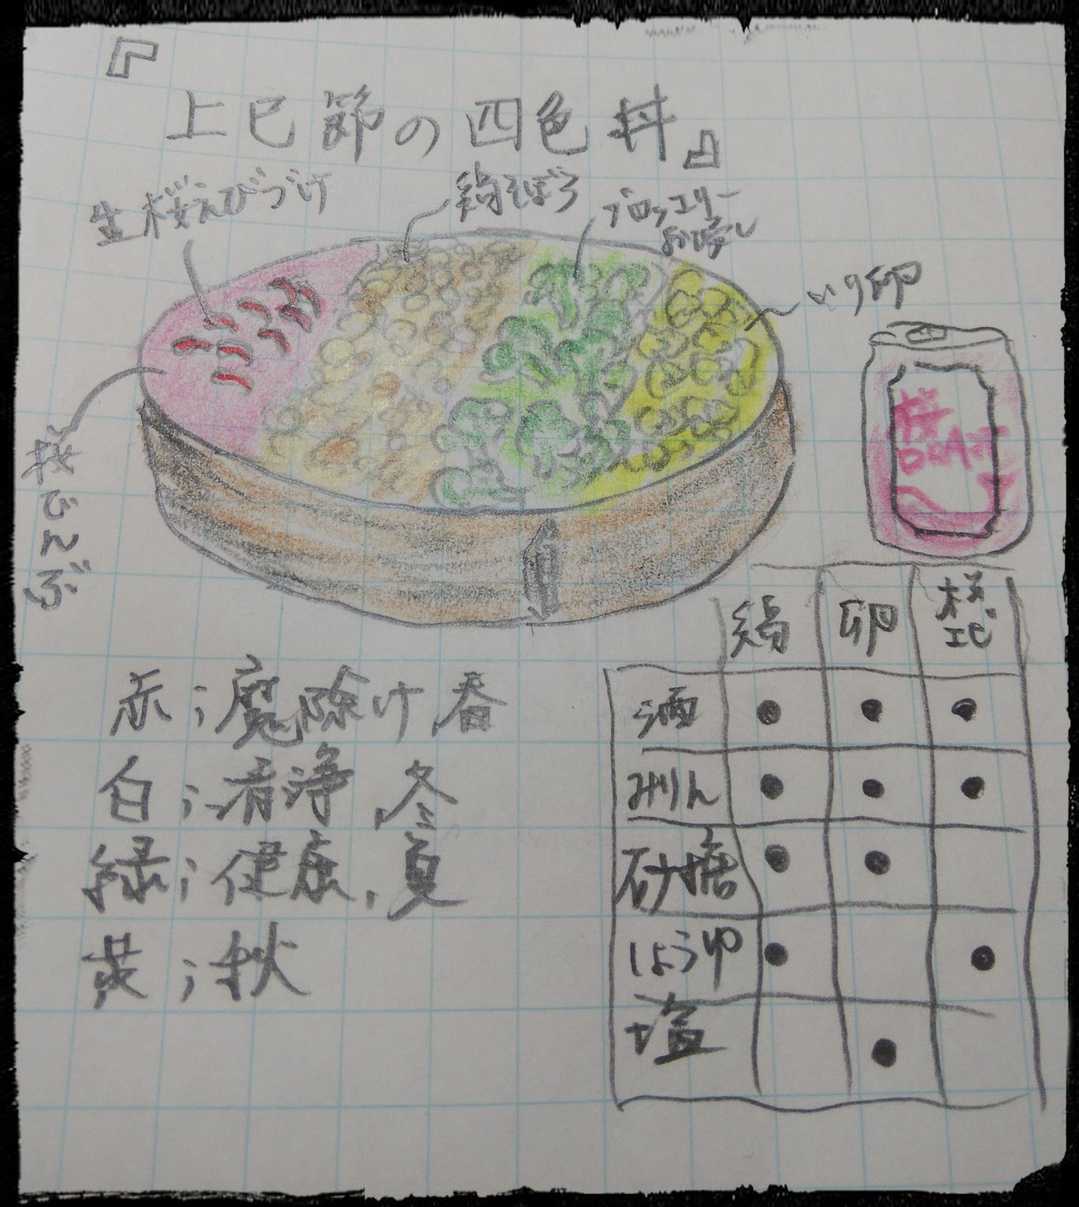 『上巳節の四色丼』
生桜えびづけ
鶏そぼろ
ブロッコリー
お浸し
いり卵
桜でんぶ
桜
DRAFT
鶏 卵 桜エビ
酒 ● ● ●
みりん ● ● ●
砂糖 ● ●
しょうゆ ● ●
塩 ●
赤；魔除け、春
白；清浄、冬
緑；健康、夏
黄；秋